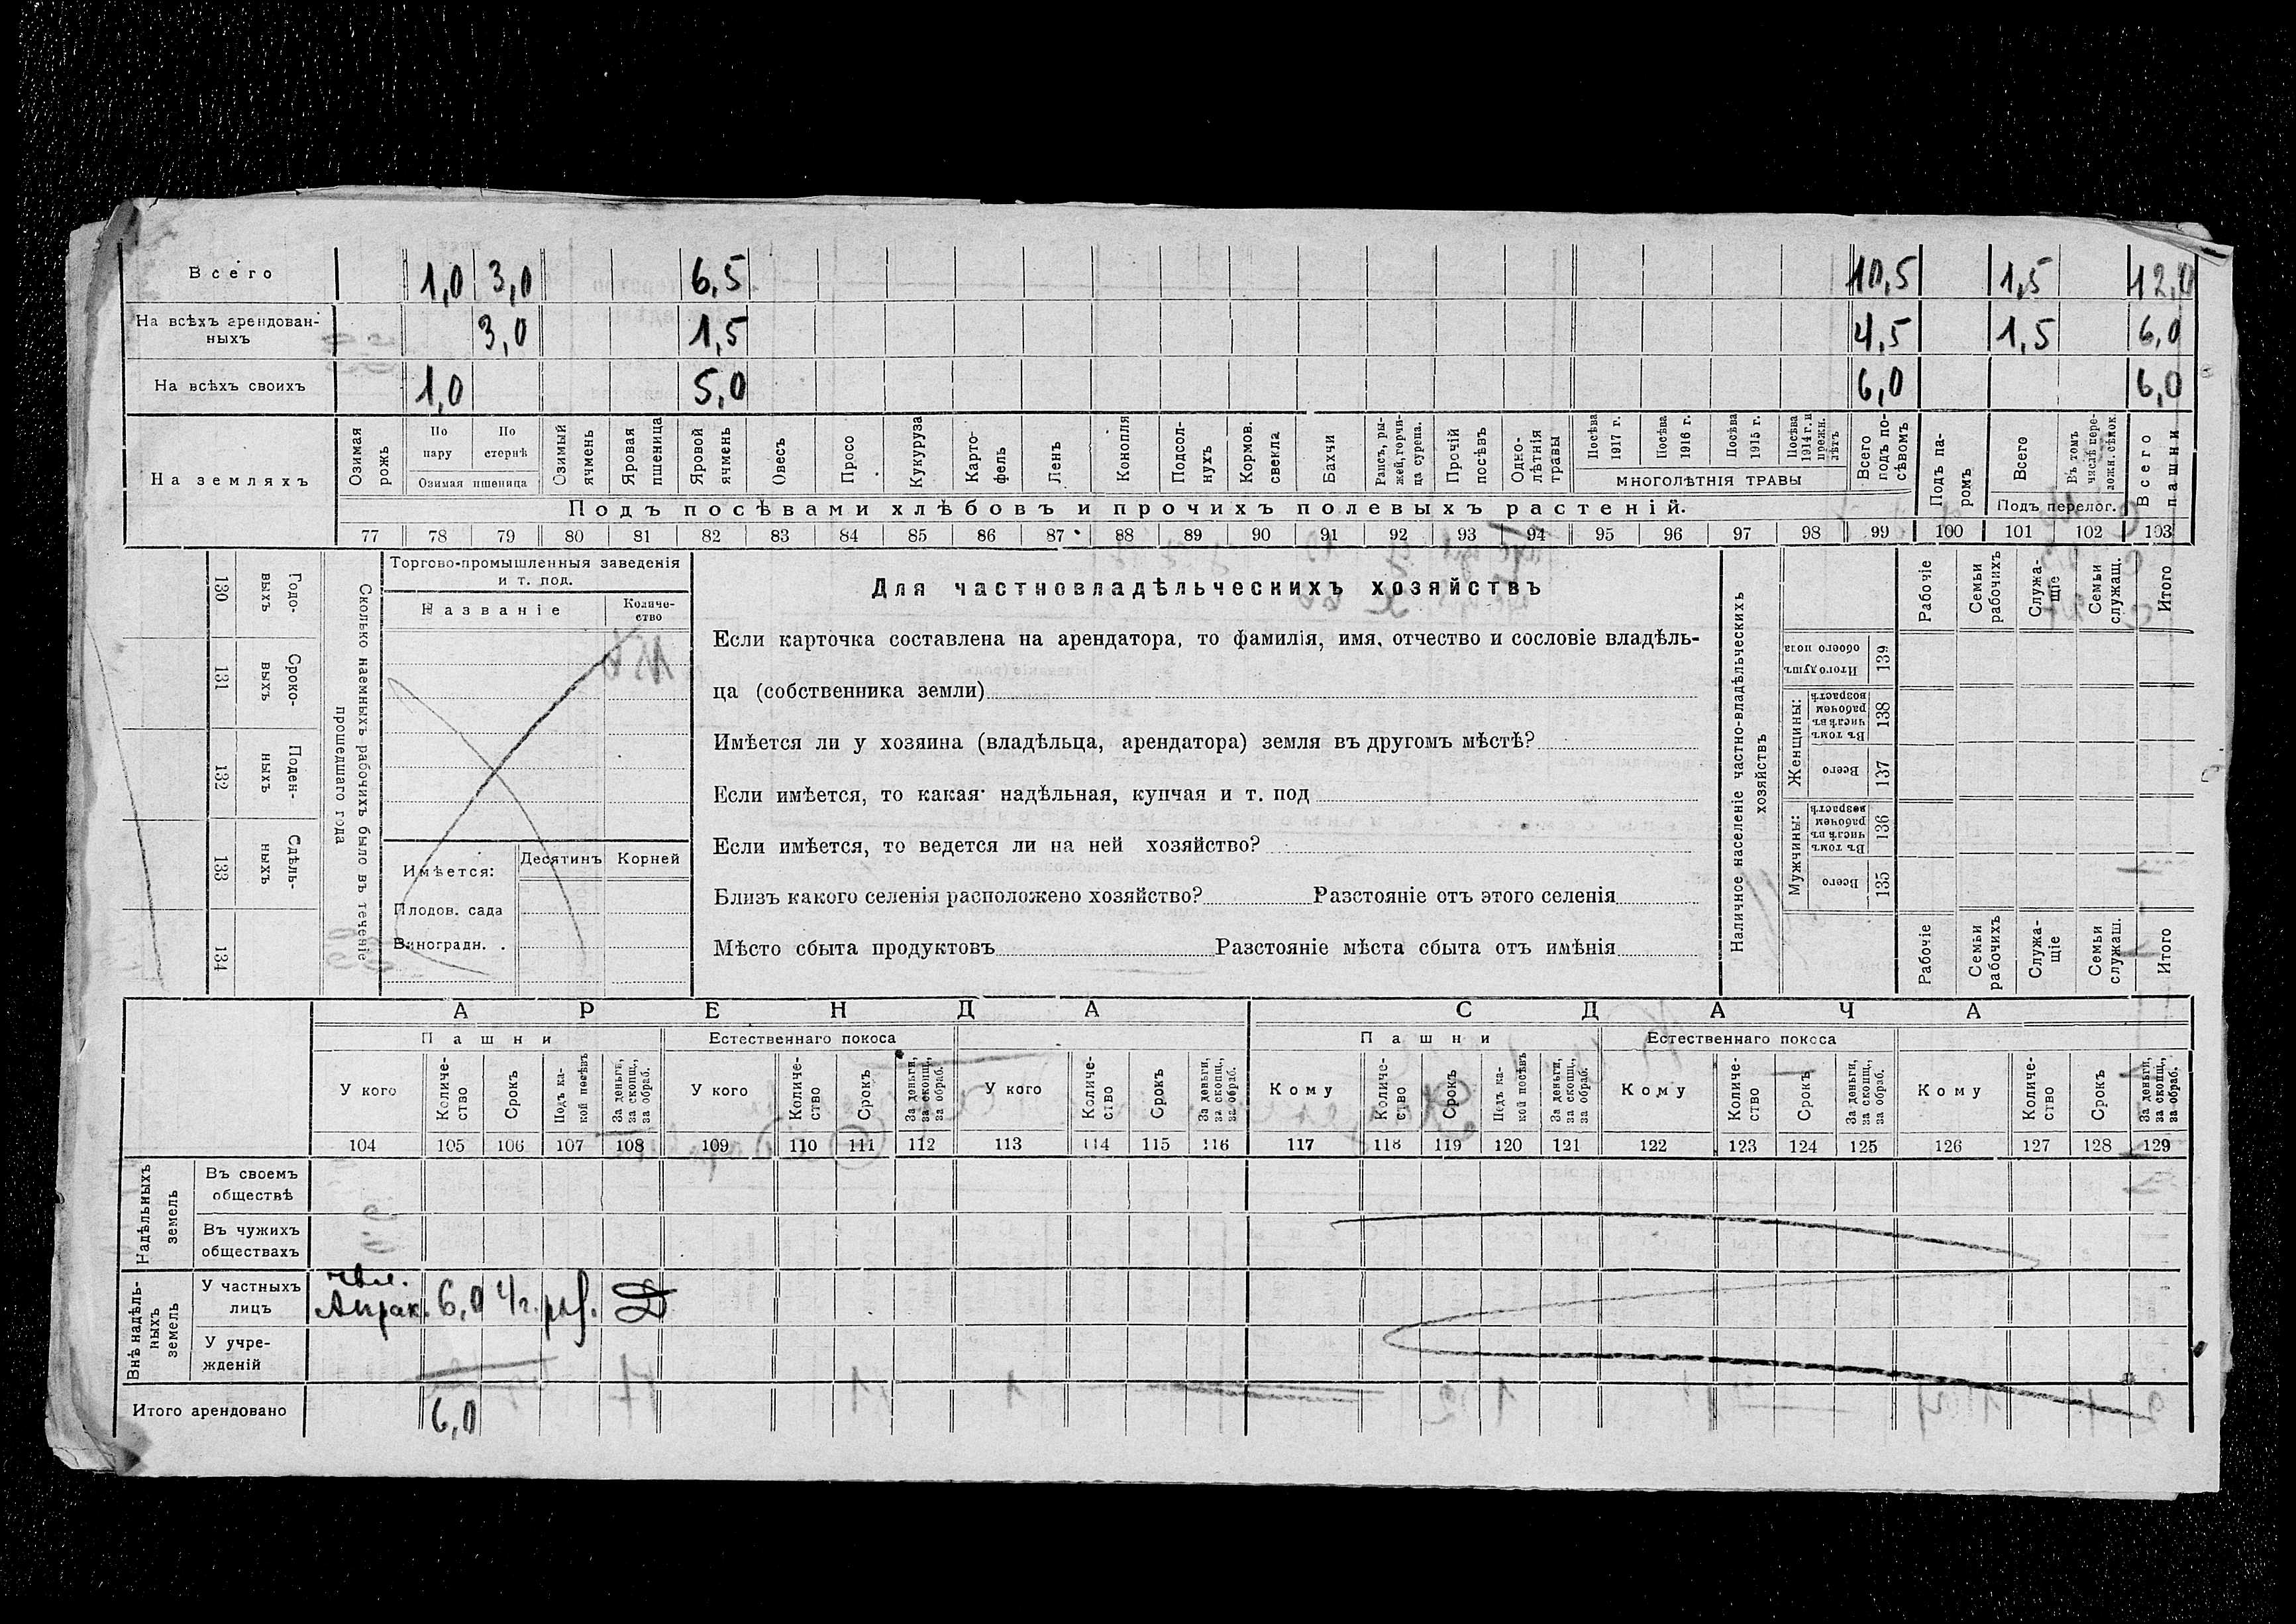 Всего 1,0 3,0 6,5 10,5 1,5 12,0
На всѣхъ арендован-
ныхъ 3,0 1,5 4,5 1,5 6,0
На всѣхъ своихъ 1,0 5,0 6,0 6,0
На земляхъ
Озимая рожь
По пару
По стернѣ
Озимая пшеница
Озимый ячмень
Яровая пшеница
Яровой ячмень
Овесъ
Просо
Кукуруза
Карто-
фель
Ленъ
Конопля
Подсол-
нухъ
Кормов. свекла
Бахчи
Рапсъ, ры-
жей, горчи-
ца сурепа.
Прочій посѣвъ
Одно-
лѣтнія травы
Посѣва 1917 г.
Посѣва 1916 г.
Посѣва 1915 г.
Посѣва 1914 г. и прежн. лѣтъ
МНОГОЛѢТНІЯ ТРАВЫ
Всего подъ по-
сѣвомъ
Подъ па-
ромъ
Всего
Въ томъ числѣ пере-
ложн. сѣнок.
Подъ перелог.
Всего пашни
Подъ посѣвами хлѣбовъ и прочихъ полевыхъ растеній.
77 78 79 80 81 82 83 84 85 86 87 88 89 90 91 92 93 94 95 96 97 98 99 100 101 102 103
Сколько наемныхъ рабочихъ было въ теченіе
прошедшаго года
Годо-
выхъ
130
Сроко-
выхъ
131
Поден-
ныхъ
132
Сдѣль-
ныхъ
133
134
Торгово-промышленныя заведенія
и т. под.
Названіе
Количе-
ство
Имѣется:
Десятинъ Корней
Плодов. сада
Виноградн. .
Для частновладѣльческихъ хозяйствъ
Если карточка составлена на арендатора, то фамилія, имя, отчество и сословіе владѣль-
ца (собственника земли)
Имѣется ли у хозяина (владѣльца, арендатора) земля въ другомъ мѣстѣ?
Если имѣется, то какая: надѣльная, купчая и т. под
Если имѣется, то ведется ли на ней хозяйство?
Близъ какого селенія расположено хозяйство? Разстояніе отъ этого селенія
Мѣсто сбыта продуктовъ Разстояніе мѣста сбыта отъ имѣнія
Наличное населеніе частно-владѣльческихъ
хозяйствъ
Рабочіе
Семьи рабочихъ
Служа-
щіе
Семьи служащ.
Итого
Итого душъ обоего пола
139
Женщины:
Въ томъ числѣ въ рабочем возрастѣ
138
Всего
137
Мужчины:
Въ томъ числѣ въ рабочем возрастѣ
136
Всего
135
Рабочіе
Семьи рабочихъ
Служа-
щіе
Семьи служащ.
Итого
АРЕНДА СДАЧА
Пашни Естественнаго покоса Пашни Естественнаго покоса
У кого
Количе-
ство
Срокъ
Подъ ка-
кой посѣвъ
За деньги,
за скопщ.,
за обраб.
У кого
Количе-
ство
Срокъ
За деньги,
за скопщ.,
за обраб.
У кого
Количе-
ство
Срокъ
За деньги,
за скопщ.,
за обраб.
Кому
Количе-
ство
Срокъ
Подъ ка-
кой посѣвъ
За деньги,
за скопщ.,
за обраб.
Кому
Количе-
ство
Срокъ
За деньги,
за скопщ.,
за обраб.
Кому
Количе-
ство
Срокъ
За деньги,
за скопщ.,
за обраб.
104 105 106 107 108 109 110 111 112 113 114 115 116 117 118 119 120 121 122 123 124 125 126 127 128 129
Надѣльныхъ
земель
Въ своемъ
обществѣ
Въ чужихъ
обществахъ
Внѣ надѣль-
ныхъ
земель
У частныхъ
лицъ 6,0 4 г. Д
У учре-
жденій
Итого арендовано 6,0